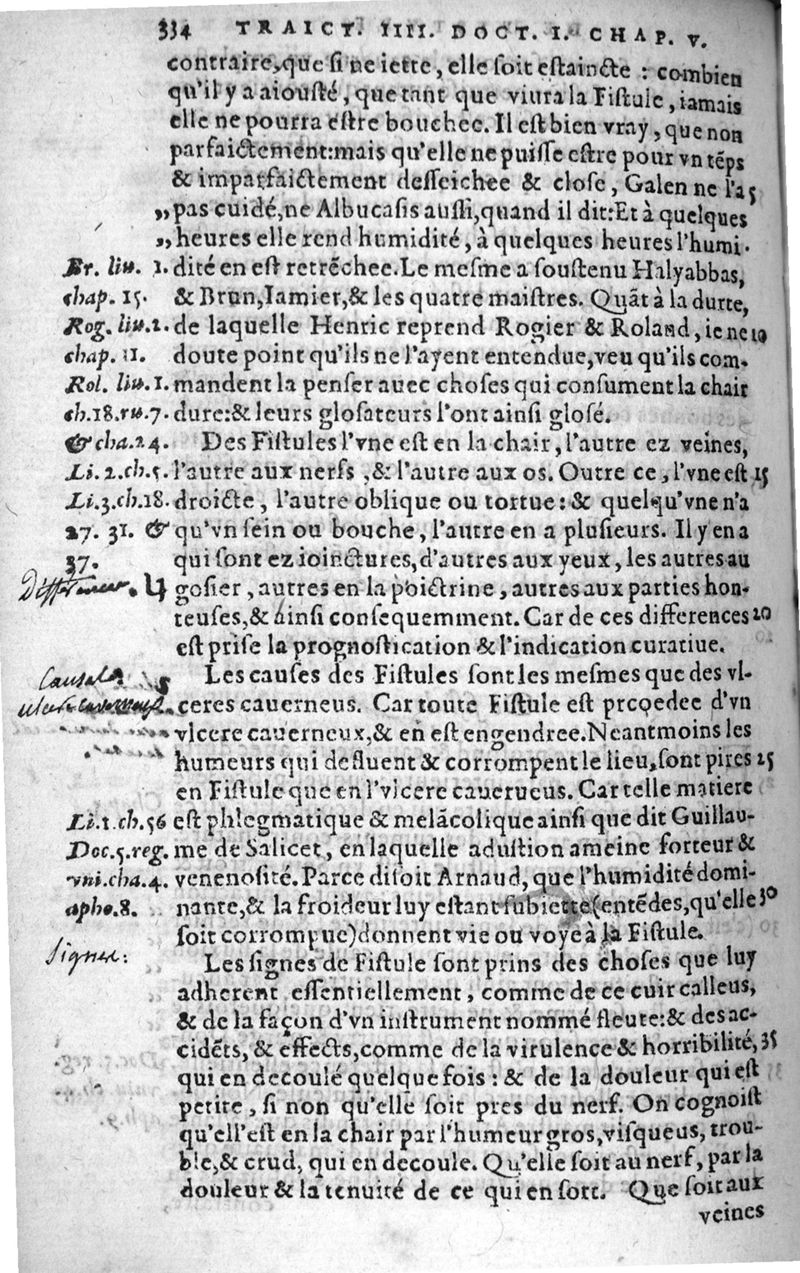 334 TRAICT. IIII. DOCT. I. CHAP. V.
contraire, que si ne iette, elle soit estaincte : combien
qu'il y a aiousté, que tant que viura la Fistule, iamais
elle ne pourra estre bouchee. Il est bien vray, que non
parfaictement: mais qu'elle ne puisse estre pour vn tẽps
& imparfaictement desseichee & close, Galen ne l'a 5
„ pas cuidé, ne Albucasis aussi, quand il dit: Et à quelques
„ heures elle rend humidité, à quelques heures l'humi-
Br. liu. 1. dité en est retrẽchee. Le mesme a soustenu Halyabbas,
chap. 15. & Brun, Iamier, & les quatre maistres. Quãt à la durte,
Rog. liu. 2. de laquelle Henric reprend Rogier & Roland, ie ne 10
chap. 11. doute point qu'ils ne l'ayent entendue, veu qu'ils com-
Rol. liu. 1. mandent la penser auec choses qui consument la chair
ch. 18. ru. 7. dure: & leurs glosateurs l'ont ainsi glosé.
& cha. 24. Des Fistules l'vne est en la chair, l'autre ez veines,
Li. 2. ch. 5. l'autre aux nerfs, & l'autre aux os. Outre ce, l'vne est 15
Li. 3. ch. 18. droicte, l'autre oblique ou tortue: & quelqu'vne n'a
27. 31. & qu'vn sein ou bouche, l'autre en a plusieurs. Il y en a
37. qui sont ez ioinctures, d'autres aux yeux, les autres au
gosier, autres en la poictrine, autres aux parties hon-
teuses, & ainsi consequemment. Car de ces differences 20
est prise la prognostication & l'indication curatiue.
Les causes des Fistules sont les mesmes que des vl-
ceres cauerneus. Car toute Fistule est prcoedee d'vn
vlcere cauerneux, & en est engendree. Neantmoins les
humeurs qui defluent & corrompent le lieu, sont pires 25
en Fistule que en l'vlcere cauerueus. Car telle matiere
Li. 1. ch. 56 est phlegmatique & melãcolique ainsi que dit Guillau-
Doc. 5. reg. me de Salicet, en laquelle adustion ameine forteur &
vni. cha. 4. venenosité. Parce disoit Arnaud, que l'humidité domi-
apho. 8. nante, & la froideur luy estant subiette (entẽdes, qu'elle 30
soit corrompue) donnent vie ou voye à la Fistule.
Signes: Les signes de Fistule sont prins des choses que luy
adherent essentiellement, comme de ce cuir calleus,
& de la façon d'vn instrument nommé fleute: & des ac-
cidẽts, & effects, comme de la virulence & horribilité, 35
qui en decoule quelque fois : & de la douleur qui est
petite, si non qu'elle soit pres du nerf. On cognoist
qu'ell'est en la chair par l'humeur gros, visqueus, trou-
ble, & crud, qui en decoule. Qu'elle soit au nerf, par la
douleur & la tenuité de ce qui en sort. Que soit aux
veines